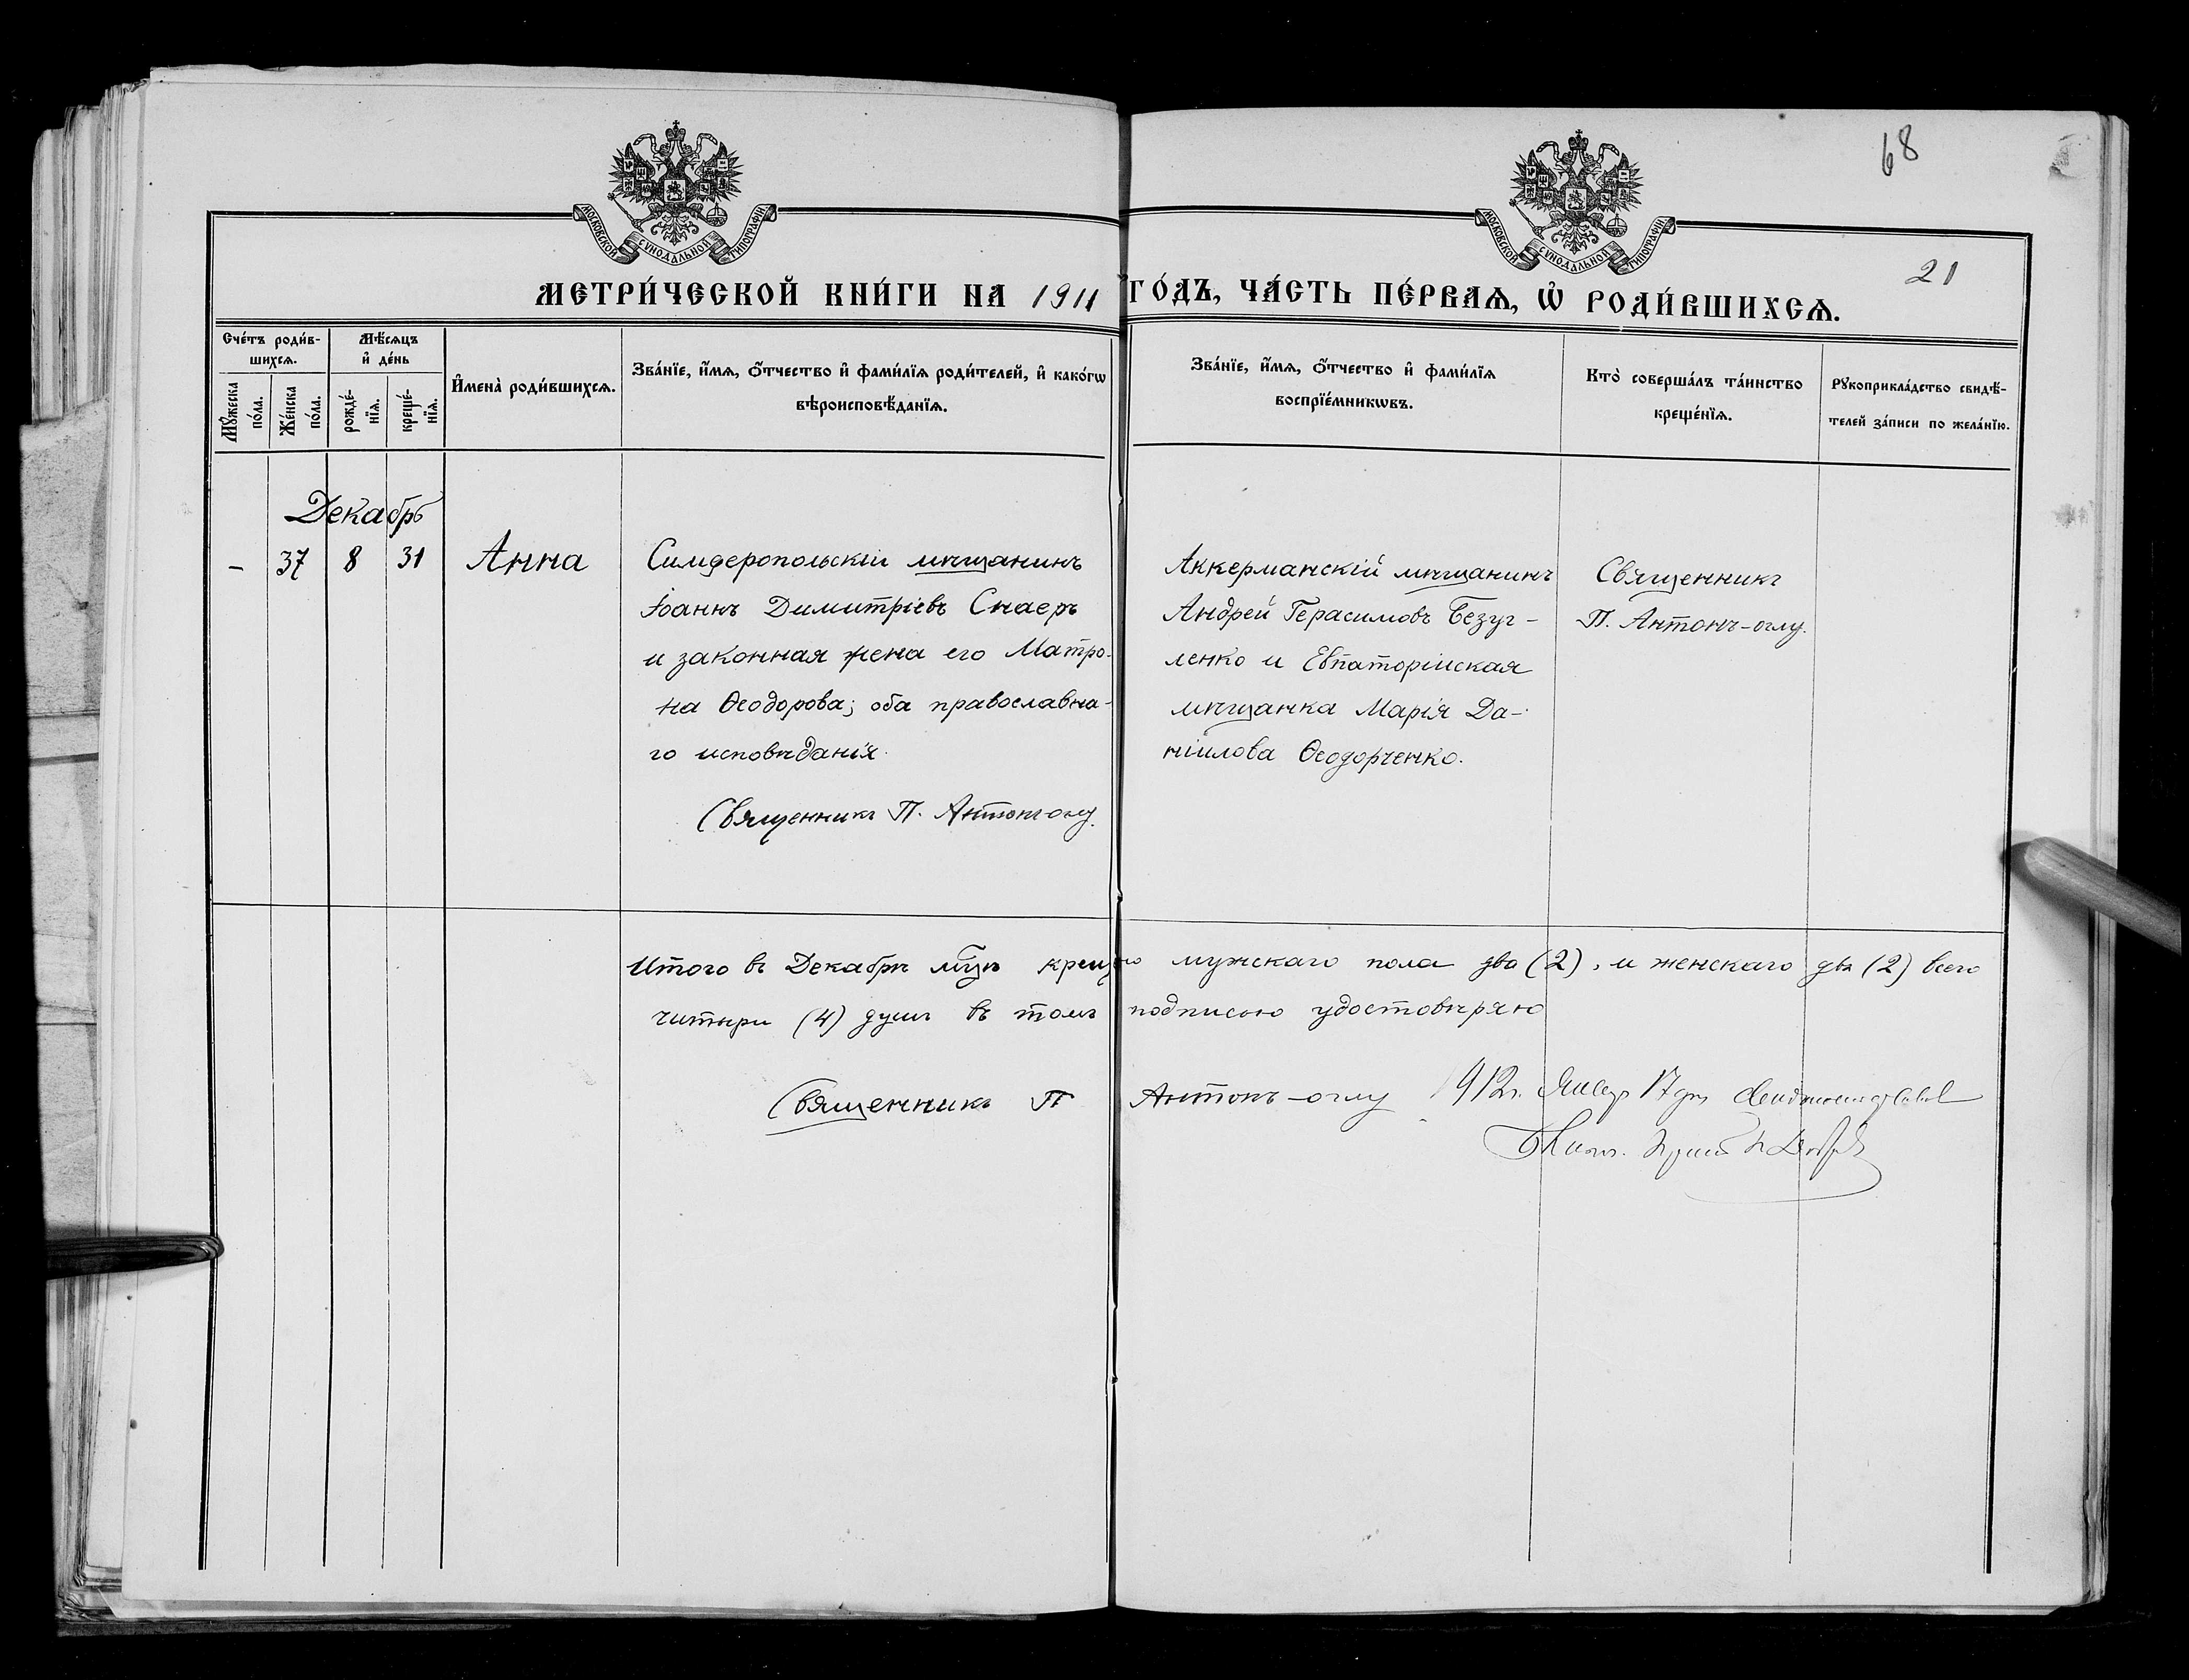 68
МОСКОВСКОЙ СѴНОДАЛЬНОЙ ТИПОГРАФІИ
МОСКОВСКОЙ СѴНОДАЛЬНОЙ ТИПОГРАФІИ
21
МЕТРИ́ЧЕСКОЙ КНИ́ГИ НА 1911 ГО́ДЪ, ЧА́СТЬ ПЕ́РВАѦ, Ѡ҆ РОДИ́ВШИХСѦ.
Сче́тъ роди́в-
шихсѧ.
Мꙋ́жеска
по́ла.
Же́нска
по́ла.
Мѣ́сѧцъ
и҆ де́нь
рожде́-
нїѧ.
креще́-
нїѧ.
И҆мена̀ роди́вшихсѧ.
Зва́нїе, и҆́мѧ, ѻ҆́тчество и҆ фами́лїѧ роди́телей, и҆ како́гѡ
вѣроисповѣ́данїѧ.
Зва́нїе, и҆́мѧ, ѻ҆́тчество и҆ фами́лїѧ
воспрїе́мникѡвъ.
Кто̀ соверша́лъ та́инство
креще́нїѧ.
Рꙋкоприкла́дство свидѣ́-
телей за́писи по жела́нїю.
Декабрь
–
37
8
31
Анна
Симферопольскій мѣщанинъ
Іоаннъ Димитріевъ Снаеръ
и законная жена его Матро-
на Ѳеодорова; оба православна-
го исповѣданія.
Священникъ П. Антонъ-оглу.
Аккерманскій мѣщанинъ
Андрей Герасимовъ Безуг-
ленко и Евпаторійская
мѣщанка Марія Да-
ніилова Ѳеодорченко.
Священникъ
П. Антонъ-оглу.
Итого въ Декабрѣ мцѣ мужскаго пола два (2), и женскаго два (2) всего
читыри (4) душъ въ томъ подписью удостовѣряю
Священникъ П Антонъ-оглу
1912г. 17